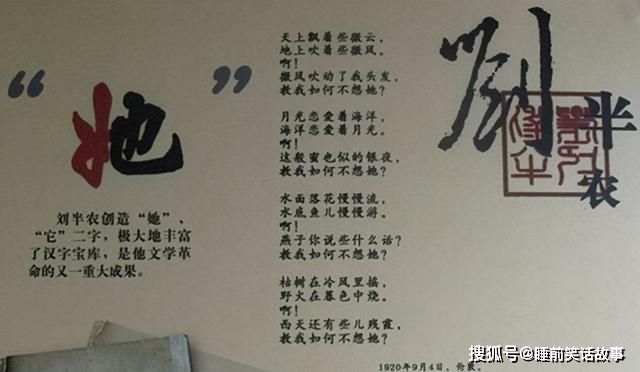 “她”
刘半农创造“她”、
“它”二字，极大地丰富
了汉字宝库，是他文学革
命的又一重大成果。
天上飘着些微云，
地上吹着些微风。
啊！
微风吹动了我头发，
教我如何不想她？
月光恋爱着海洋，
海洋恋爱着月光。
啊！
这般蜜也似的银夜，
教我如何不想她？
水面落花慢慢流，
水底鱼儿慢慢游。
啊！
燕子你说些什么话？
教我如何不想她？
枯树在冷风里摇，
野火在暮色中烧。
啊！
西天还有些儿残霞，
教我如何不想她？
1920年9月4日，伦敦。
刘
半
农
搜狐号@睡前笑话故事